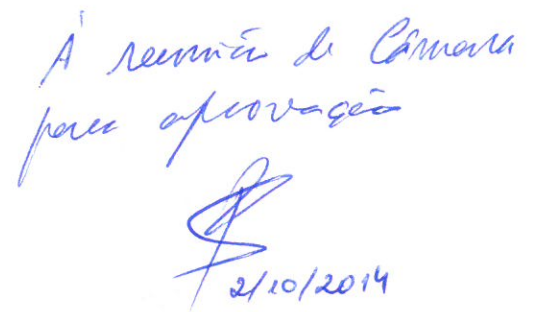 À reunião de Câmara
para aprovação
2/10/2014